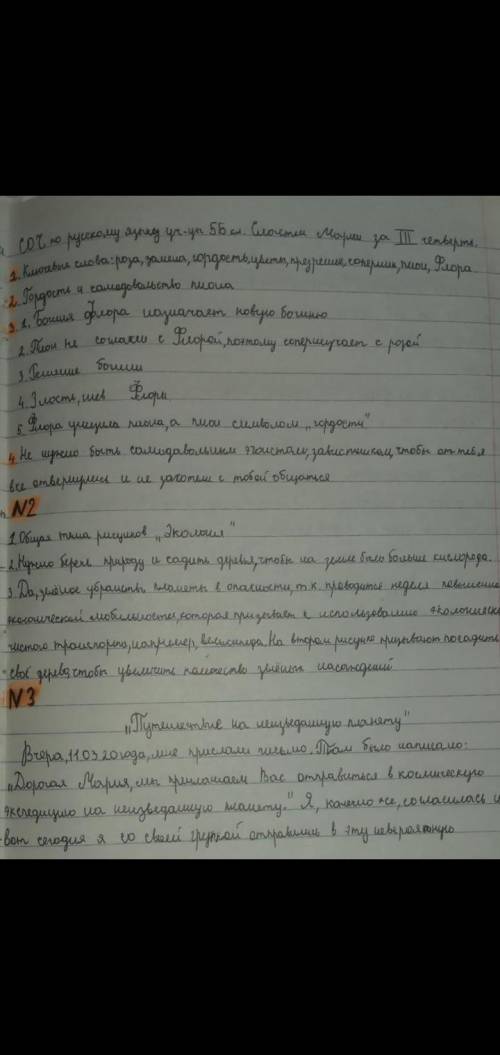 СОЧ по русскому языку уч-цы 5Б кл. Марии за III четверть.
1. Ключевые слова: роза, замена, гордость, цветы, презрение, соперник, пион, Флора
2. Гордость и самодовольство пиона
3. 1. Богиня Флора назначает новую богиню
2. Пион не согласен с Флорой, поэтому соперничает с розой
3. Решение богини
4. Злость, гнев Флоры
5. Флора пиона, а пион символом „гордости"
4. Не нужно быть самодовольным эгоистом, завистником, чтобы от тебя
все отвернулись и не захотели с тобой общаться
N2
1. Общая тема рисунков „Экология"
2. Нужно беречь природу и садить деревья, чтобы на земле было больше кислорода.
3. Да, зелёное убранство планеты в опасности, т.к. проводится неделя повышения
экологической мобильности, которая призывает к использованию экологически
чистого транспорта, например, велосипеда. На втором рисунке призывают посадить
своё дерево, чтобы увеличить количество зелёных насаждений
N3
„Путешествие на неизведанную планету"
Вчера, 11.03.20 года, мне прислали письмо. Там было написано:
„Дорогая Мария, мы приглашаем Вас отправиться в космическую
экспедицию на неизведанную планету." Я, конечно же, согласилась и
вот сегодня я со своей группой отправились в эту невероятную